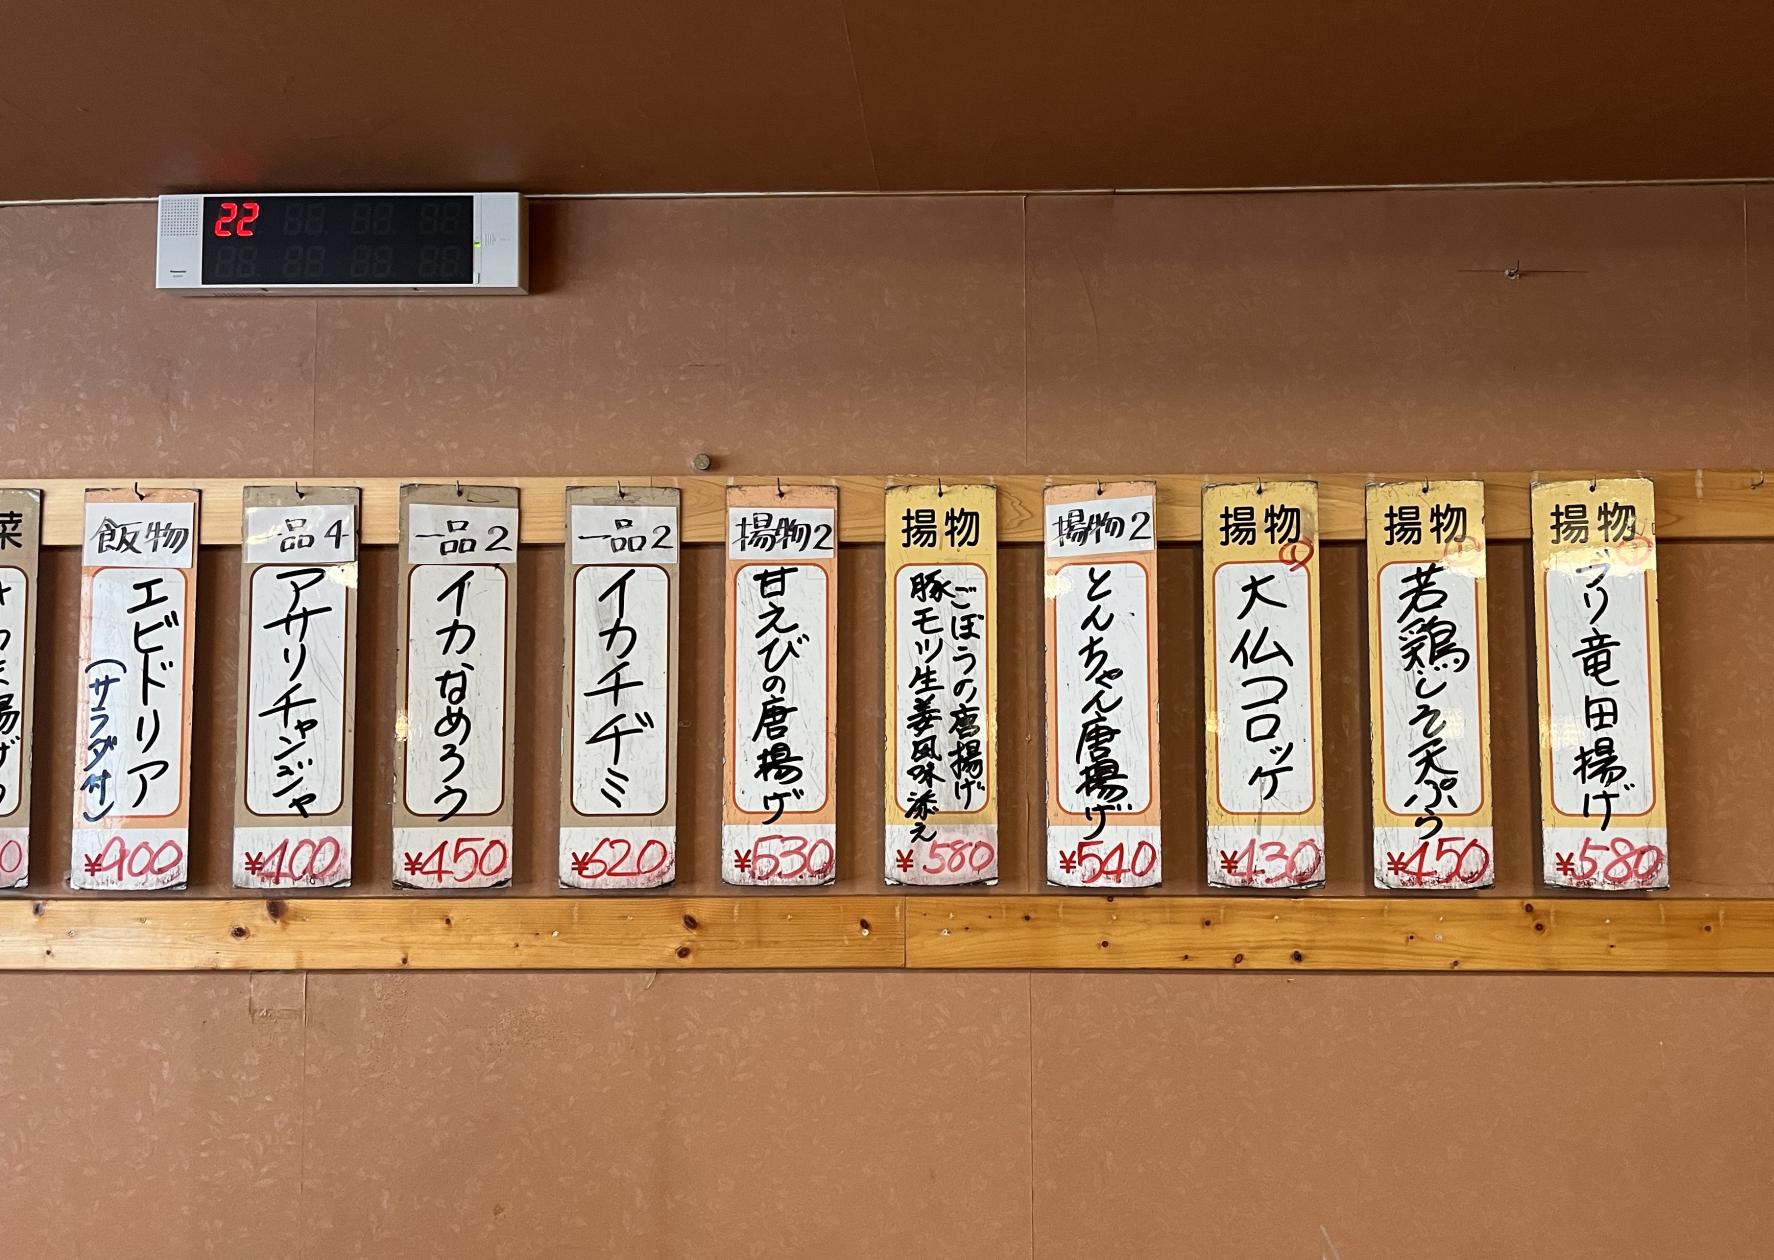 22
Panasonic
菜
飯物
エビドリア
(サラダ付)
¥900
一品4
アサリチャンジャ
¥400
一品2
イカなめろう
¥450
一品2
イカチヂミ
¥620
揚物2
甘えびの唐揚げ
¥530
揚物
ごぼうの唐揚げ
豚モツ生姜風味添え
¥580
揚物2
とんちゃん唐揚げ
¥540
揚物
①
大仏コロッケ
¥430
揚物
①
若鶏しそ天ぷら
¥450
揚物
ブリ竜田揚げ
¥580